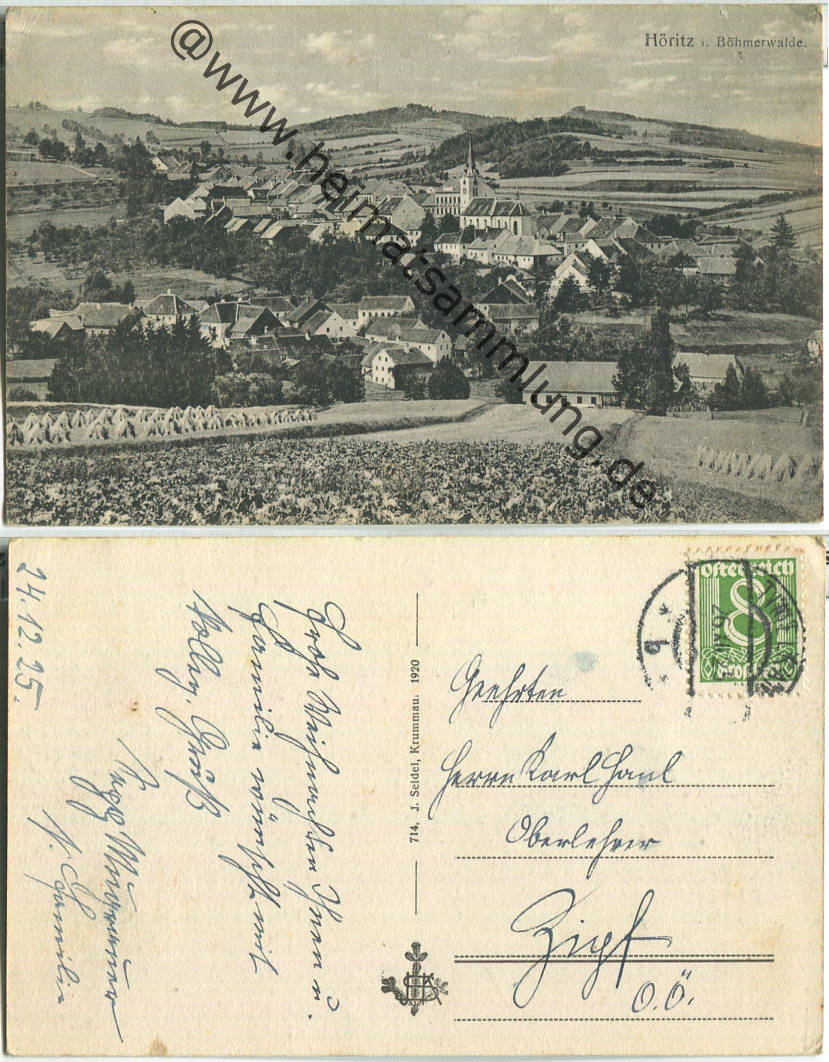 Höritz i. Böhmerwalde.
@www.heimatsammlung.de
24.12.25.
Frohe Weihnachten Ihnen u.
Familie wünscht mit
Gruß
N. Familie
714, J. Seidel, Krummau. 1920
Österreich
8
Groschen
Geehrten
Herrn Karl Haul
Oberlehrer
Zipf
O.Ö.